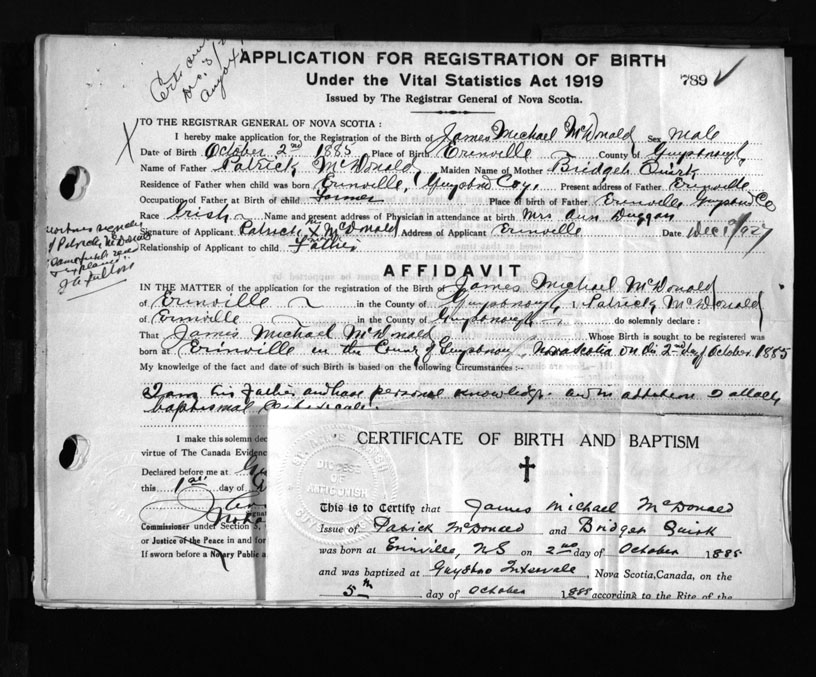 APPLICATION FOR REGISTRATION OF BIRTH
Under the Vital Statistics Act 1919
789 ✓
Issued by The Registrar General of Nova Scotia.
X
TO THE REGISTRAR GENERAL OF NOVA SCOTIA :
I hereby make application for the Registration of the Birth of James Michael McDonald Sex male
Date of Birth October 2nd 1885 Place of Birth Erinville County of Guysboro
Name of Father Patrick McDonald Maiden Name of Mother Bridget Quirk
Residence of Father when child was born Erinville, Guysboro Coy, Present address of Father Erinville
Occupation of Father at Birth of child Farmer Place of birth of Father Erinville Guysboro Co
Race Irish Name and present address of Physician in attendance at birth Mrs Ann Duggan
Signature of Applicant Patrick X McDonald Address of Applicant Erinville Date Dec 1927
Relationship of Applicant to child Father
AFFIDAVIT
IN THE MATTER of the application for the registration of the Birth of James Michael McDonald
of Erinville in the County of Guysborough, I, Patrick McDonald
of Erinville in the County of Guysborough do solemnly declare :
That James Michael McDonald Whose Birth is sought to be registered was
born at Erinville in the County of Guysboro, Nova Scotia on the 2nd day of October 1885
My knowledge of the fact and date of such Birth is based on the following Circumstances :-
I am his Father and have personal knowledge and in addition I attach
baptismal Certificate.
I make this solemn dec
virtue of The Canada Eviden
Declared before me at Gu
this 1st day of
Commissioner under Section 5,
or Justice of the Peace in and for
If sworn before a Notary Public a
DIOCESE OF ANTIGONISH
CERTIFICATE OF BIRTH AND BAPTISM
This is to Certify that James Michael McDonald
Issue of Patrick McDonald and Bridget Quirk
was born at Erinville, NS on 2nd day of October 1885
and was baptized at Guysboro Intervale, Nova Scotia, Canada, on the
5th day of October 1885 according to the Rite of the